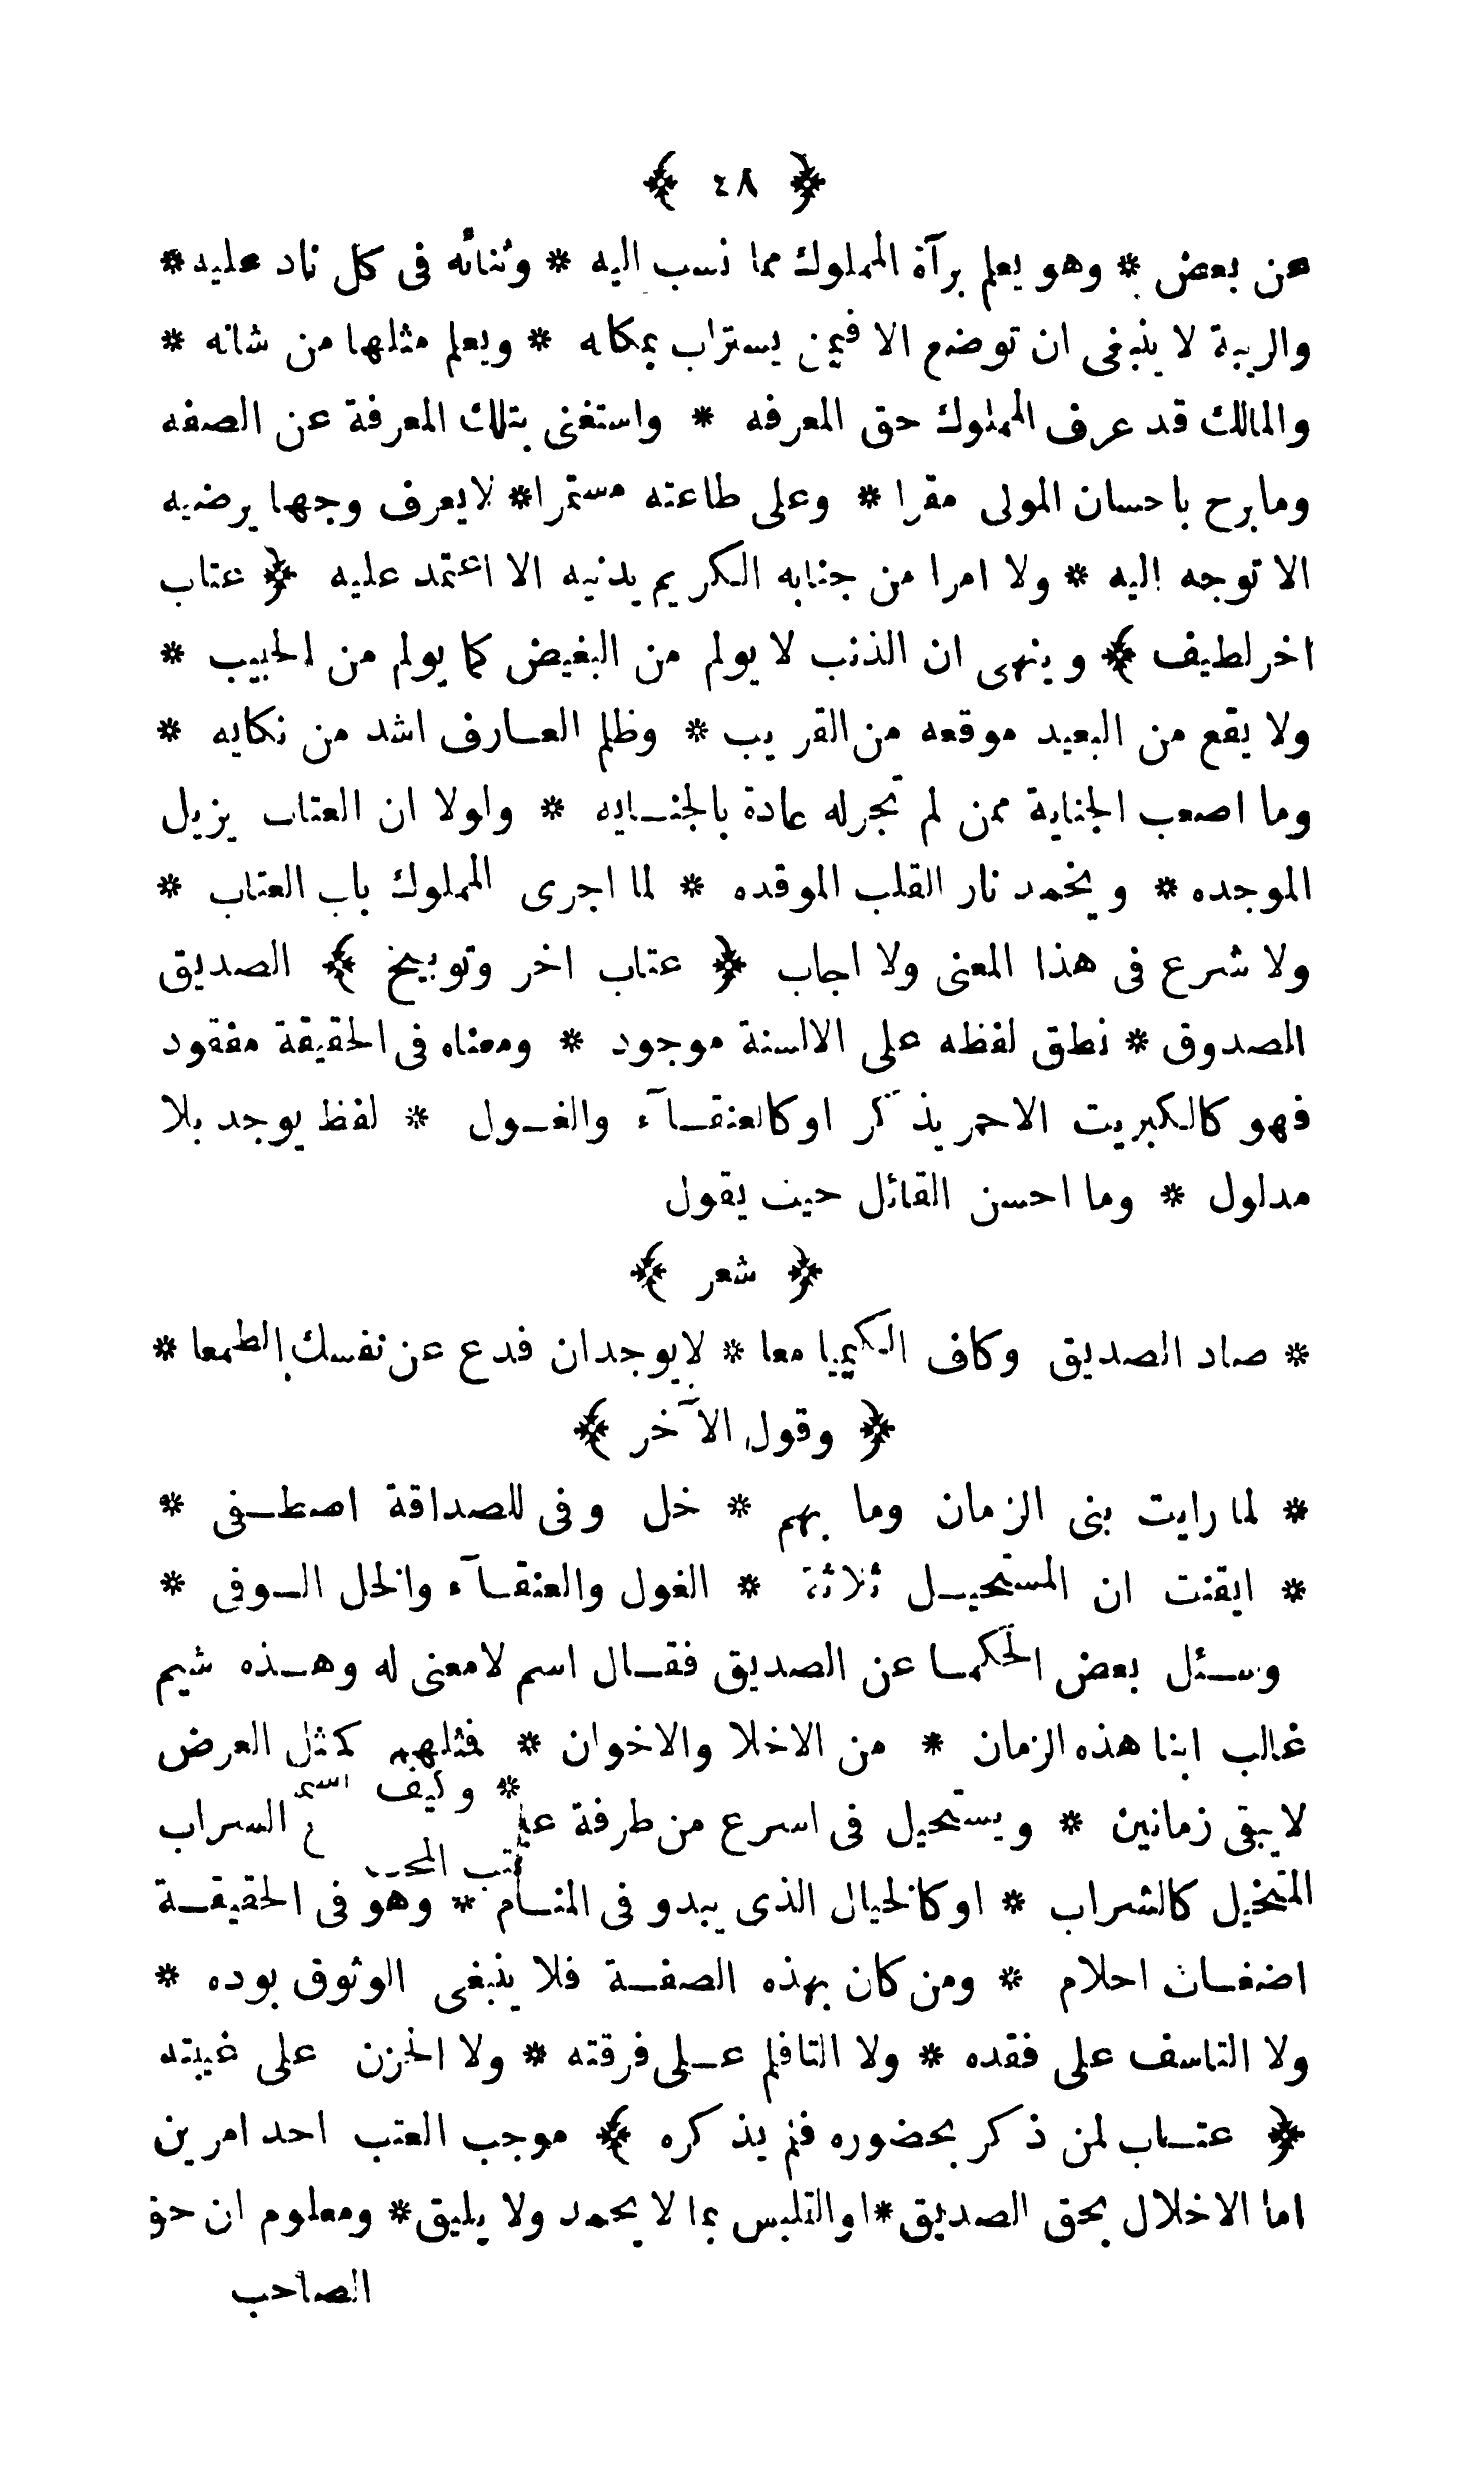 ﴿ ٤٨ ﴾
عن بعض * وهو يعلم برآة المملوك مما نسب اليه * وثنائه فى كل ناد عليه *
والريبة لا ينبغى ان توضع الا فيمن يستراب بمكانه * ويعلم مثلها من شانه *
والمالك قد عرف المملوك حق المعرفه * واستغنى بتلك المعرفة عن الصفه
ومابرح باحسان المولى مقرا * وعلى طاعته مستمرا * لايعرف وجها يرضيه
الا توجه اليه * ولا امرا من جنابه الكريم يدنيه الا اعتمد عليه ﴿ عتاب
اخر لطيف ﴾ وينهى ان الذنب لا يولم من البغيض كما يولم من الحبيب *
ولا يقع من البعيد موقعه من القريب * وظلم العارف اشد من نكايه *
وما اصعب الجناية ممن لم تجر له عادة بالجنايه * ولولا ان العتاب يزيل
الموجده * ويخمد نار القلب الموقده * لما اجرى المملوك باب العتاب *
ولا شرع فى هذا المعنى ولا اجاب ﴿ عتاب اخر وتوبيخ ﴾ الصديق
الصدوق * نطق لفظه على الالسنة موجود * ومعناه فى الحقيقة مفقود
فهو كالكبريت الاحمر يذكر اوكالعنقآء والغول * لفظ يوجد بلا
مدلول * وما احسن القائل حيث يقول
﴿ شعر ﴾
* صاد الصديق وكاف الكيميا معا * لايوجدان فدع عن نفسك الطمعا *
﴿ وقول الآخر ﴾
* لما رايت بنى الزمان وما بهم * خل وفى للصداقة اصطفى *
* ايقنت ان المستحيل ثلاثة * الغول والعنقآء والخل الوفى *
وسئل بعض الحكما عن الصديق فقال اسم لامعنى له وهذه شيم
غالب ابنا هذه الزمان * من الاخلا والاخوان * فمثلهم كمثل العرض
لايبقى زمانين * ويستحيل فى اسرع من طرفة السراب
المتخيل كالشراب * اوكالخيال الذى يبدو فى المنام * وهو فى الحقيقة
اضغاث احلام * ومن كان بهذه الصفة فلا ينبغى الوثوق بوده *
ولا التاسف على فقده * ولا التافلم على فرقته * ولا الحزن على غيبته
﴿ عتاب لمن ذكر بحضوره فلم يذكره ﴾ موجب العتب احد امرين
اما الاخلال بحق الصديق * او التلبس بما لا يحمد ولا يليق * ومعلوم ان حق
الصاحب